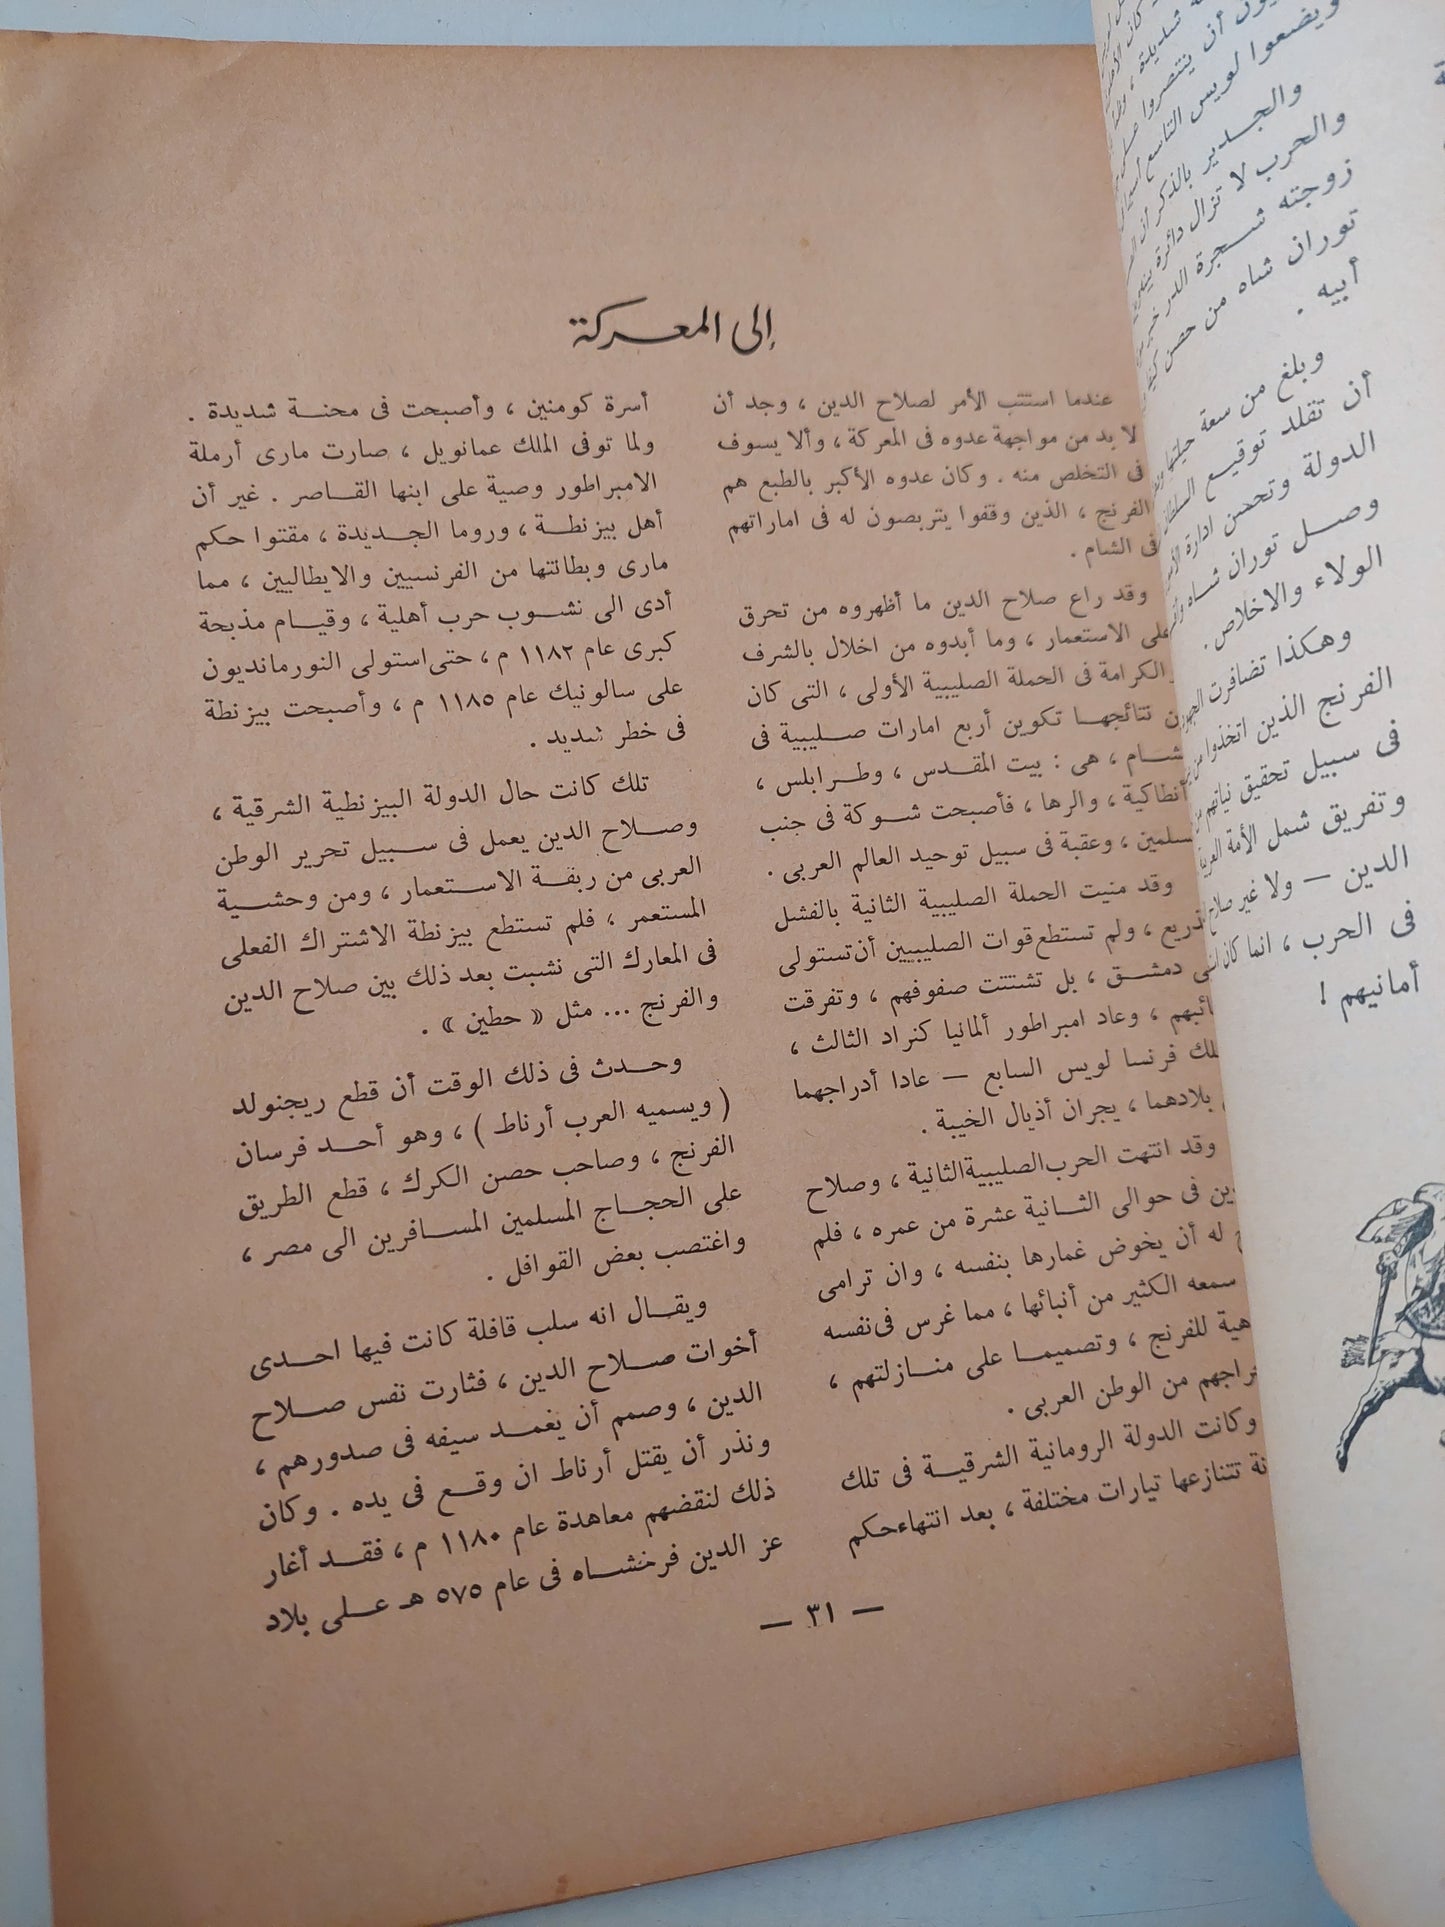 إلى المعركة
عندما استتب الأمر لصلاح الدين ، وجد أن
لا بد من مواجهة عدوه فى المعركة ، وألا يسوف
فى التخلص منه . وكان عدوه الأكبر بالطبع هم
الفرنج ، الذين وقفوا يتربصون له فى اماراتهم
فى الشام .
وقد راع صلاح الدين ما أظهروه من تحرق
على الاستعمار ، وما أبدوه من اخلال بالشرف
والكرامة فى الحملة الصليبية الأولى ، التى كان
نتائجهـا تكوين أربع امارات صـليبية فى
هى : بيت المقـدس ، وطـرابلس ،
أنطاكية ، والرها ، فأصبحت شـوكة فى جنب
وعقبة فى سبيل توحيد العالم العربى .
وقد منيت الحملة الصليبية الثانية بالفشل
ولم تستطع قوات الصليبيين أن تستولى
دمشـق ، بل تشتتت صفوفهم ، وتفرقت
وعاد امبراطور ألمانيا كنراد الثالث ،
فرنسا لويس السابع — عادا أدراجهما
بلادهما ، يجران أذيال الخيبة .
وقد انتهت الحرب الصليبية الثانية ، وصلاح
فى حوالى الثـانية عشرة من عمره ، فلم
له أن يخوض غمارها بنفسه ، وان ترامى
سمعه الكثير من أنبائها ، مما غرس فى نفسه
للفرنج ، وتصميمـا على منـازلتهم ،
من الوطن العربى .
وكانت الدولة الرومانية الشرقيـة فى تلك
تتنازعها تيارات مختلفة ، بعد انتهاء حكم
أسرة كومنين ، وأصبحت فى محنـة شديدة .
ولما توفى الملك عمانويل ، صارت مارى أرملة
الامبراطور وصية على ابنها القـاصر . غير أن
أهل بيزنطـة ، وروما الجـديدة ، مقتوا حكم
مارى وبطانتها من الفرنسيين والايطاليين ، مما
أدى الى نشـوب حرب أهلية ، وقيـام مذبحة
كبرى عام ١١٨٢ م ، حتى استولى النورمانديون
على سالونيك عام ١١٨٥ م ، وأصبحت بيزنطة
فى خطر شديد .
تلك كانت حال الدولة البيزنطية الشرقية ،
وصـلاح الدين يعمل فى سـبيل تحرير الوطن
العربى من ربقـة الاسـتعمار ، ومن وحشـية
المستعمر ، فلم تستطع بيزنطة الاشتراك الفعلى
فى المعارك التى نشبت بعد ذلك بين صلاح الدين
والفرنج ... مثل « حطين » .
وحـدث فى ذلك الوقت أن قطع ريجنولد
( ويسميه العرب أرناط ) ، وهو أحـد فرسان
الفرنج ، وصاحب حصن الكرك ، قطع الطريق
على الحجـاج المسلمين المسـافرين الى مصر ،
واغتصب بعض القوافل .
ويقـال انه سلب قافلة كانت فيها احـدى
أخوات صـلاح الدين ، فثارت نفس صـلاح
الدين ، وصمم أن يغمـد سيفه فى صدورهم ،
ونذر أن يقتل أرناط ان وقـع فى يده . وكان
ذلك لنقضهم معاهدة عام ١١٨٠ م ، فقـد أغار
عز الدين فرخشـاه فى عام ٥٧٥ هـ عـلى بلاد
— ٣١ —
ويضعوا لويس التاسع
والجـدير بالذكر أن
والحرب لا تزال دائرة
زوجته شـجرة الدر
توران شاه من حصن
أبيه .
وبلغ من سعة حيلتها
أن تقلد توقيـع
الدولة وتحسن ادارة
وصـل توران شـاه
الولاء والاخلاص .
وهـكذا تضافرت
الفرنج الذين اتخذوا
فى سبيل تحقيق نياتهم
وتفريق شمل الأمة
الدين — ولا غير صلاح
فى الحرب ، انما كان
أمانيهم !